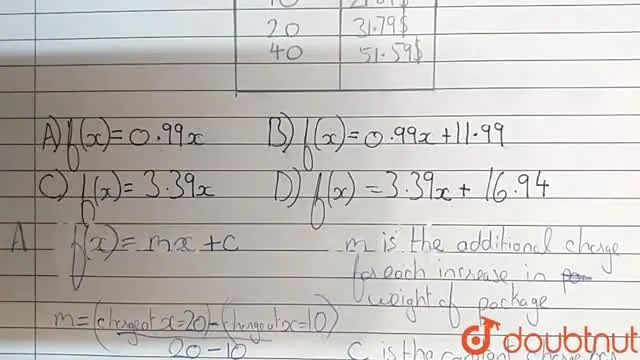 20 31.79$
40 51.59$
A) f(x)=0.99x B) f(x)=0.99x+11.99
C) f(x)=3.39x D) f(x)=3.39x+16.94
A f(x)=mx+c m is the additional charge
for each increase in
weight of package
m=(charge at x=20)-(charge at x=10)
20-10
C is the
doubtnut